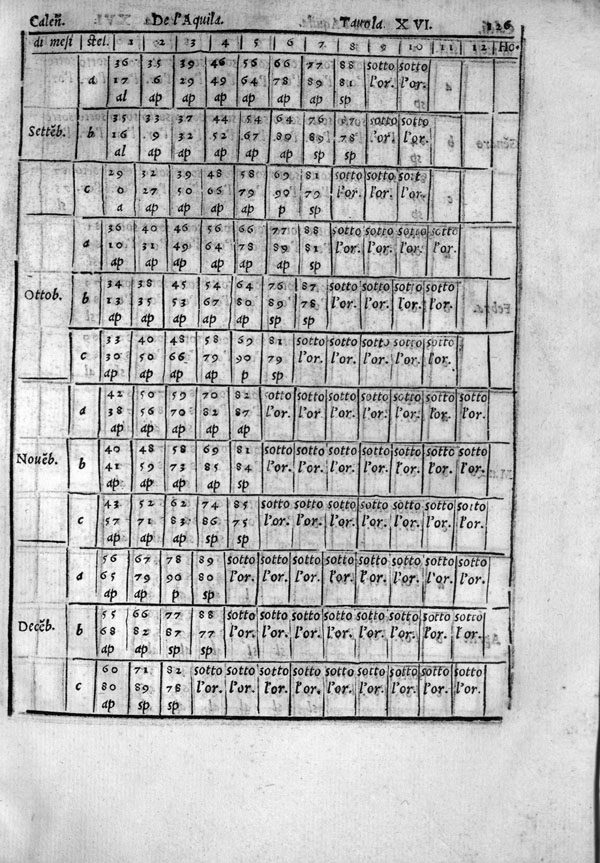 Caleñ. De l'Aquila. Tavola. XVI. 126
di mesi stel. 1 2 3 4 5 6 7 8 9 10 11 12 Ho.
36 35 39 46 56 66 77 88 sotto sotto
a 17 6 29 49 64 78 89 81 l'or. l'or.
al ap ap ap ap ap ap sp
35 33 37 44 54 64 76 87 sotto sotto
Settēb. b 16 9 32 52 67 80 89 78 l'or. l'or.
al ap ap ap ap ap sp sp
29 32 39 48 58 69 81 sotto sotto sotto
c 0 27 50 66 79 90 79 l'or. l'or. l'or.
a ap ap ap ap p sp
36 40 46 56 66 77 88 sotto sotto sotto sotto
a 10 31 49 64 78 89 81 l'or. l'or. l'or. l'or.
ap ap ap ap ap ap sp
34 38 45 54 64 76 87 sotto sotto sotto sotto
Ottob. b 13 35 53 67 80 89 78 l'or. l'or. l'or. l'or.
ap ap ap ap ap sp sp
33 40 48 58 69 81 sotto sotto sotto sotto sotto
c 30 50 66 79 90 79 l'or. l'or. l'or. l'or. l'or.
ap ap ap ap p sp
42 50 59 70 82 sotto sotto sotto sotto sotto sotto sotto
a 38 56 70 82 87 l'or. l'or l'or. l'or. l'or. l'or. l'or.
ap ap ap ap ap
40 48 58 69 81 sotto sotto sotto sotto sotto sotto sotto
Nouēb. b 41 59 73 85 84 l'or. l'or. l'or. l'or. l'or. l'or. l'or.
ap ap ap ap sp
43 52 62 74 85 sotto sotto sotto sotto sotto sotto sotto
c 57 71 83 86 75 l'or. l'or. l'or. l'or. l'or. l'or. l'or.
ap ap ap sp sp
56 67 78 89 sotto sotto sotto sotto sotto sotto sotto sotto
a 65 79 90 80 l'or. l'or. l'or. l'or. l'or. l'or. l'or. l'or.
ap ap p sp
55 66 77 88 sotto sotto sotto sotto sotto sotto sotto sotto
Decēb. b 68 82 87 77 l'or. l'or. l'or. l'or. l'or. l'or. l'or. l'or.
ap ap sp sp
60 71 82 sotto sotto sotto sotto sotto sotto sotto sotto sotto
c 80 89 78 l'or. l'or. l'or. l'or. l'or. l'or. l'or. l'or. l'or.
ap sp sp